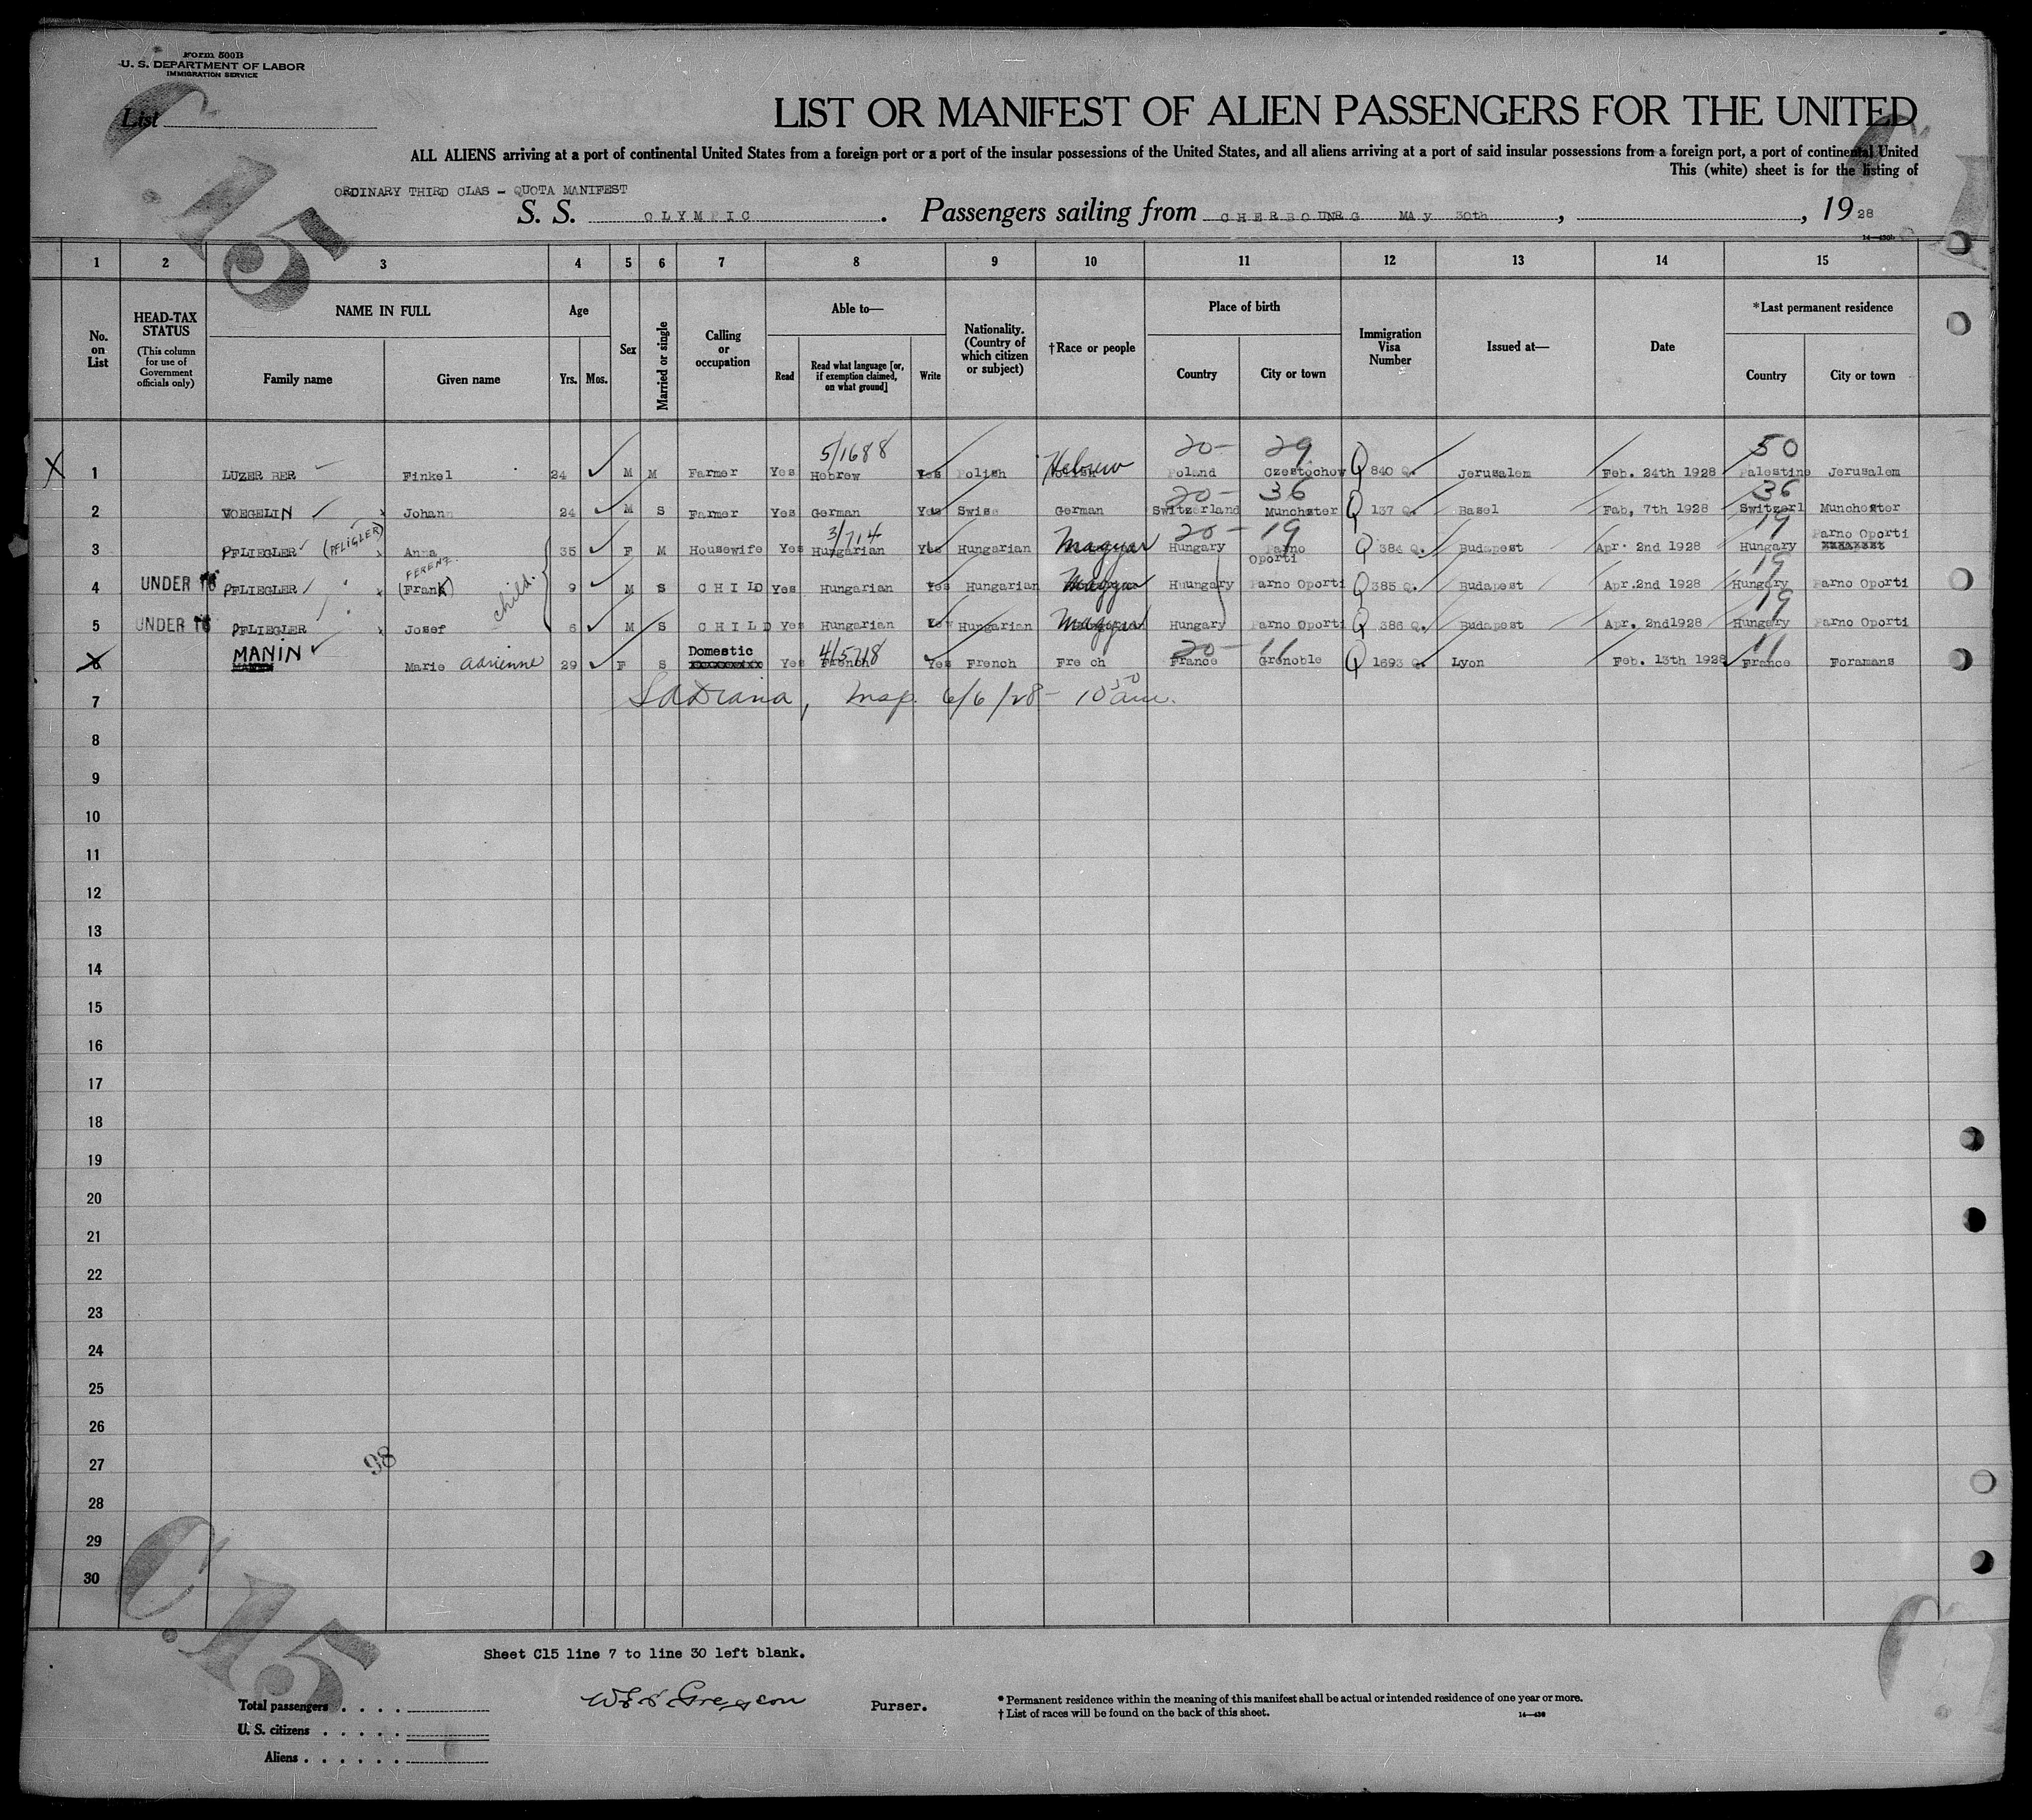 Form 500B
U. S. DEPARTMENT OF LABOR
IMMIGRATION SERVICE
C.15
List
LIST OR MANIFEST OF ALIEN PASSENGERS FOR THE UNITED
ALL ALIENS arriving at a port of continental United States from a foreign port or a port of the insular possessions of the United States, and all aliens arriving at a port of said insular possessions from a foreign port, a port of continental United
This (white) sheet is for the listing of
ORDINARY THIRD CLAS - QUOTA MANIFEST
S. S. OLYMPIC. Passengers sailing from CHERBOURG MAy 30th, , 1928
14-430b
1 2 3 4 5 6 7 8 9 10 11 12 13 14 15
No. on List
HEAD-TAX STATUS (This column for use of Government officials only)
NAME IN FULL
Family name Given name
Age
Yrs. Mos.
Sex
Married or single
Calling or occupation
Able to—
Read
Read what language [or, if exemption claimed, on what ground]
Write
Nationality. (Country of which citizen or subject)
†Race or people
Place of birth
Country City or town
Immigration Visa Number
Issued at—
Date
*Last permanent residence
Country City or town
5/1688 20- 29 50
X 1 LUZER BER Finkel 24 M M Farmer Yes Hebrew Yes Polish Hebrew Poland Czestochow Q 840 Q. Jerusalem Feb. 24th 1928 Palestine Jerusalem
20- 36 36
2 VOEGELIN Johann 24 M S Farmer Yes German Yes Swiss German Switzerland Munchster Q 137 Q. Basel Fab, 7th 1928 Switzerl Munchester
3/714 20- 19 19
3 PFLIEGLER (PFLIGLER) Anna 35 F M Housewife Yes Hungarian Yes Hungarian Magyar Hungary Parno Oporti Q 384 Q. Budapest Apr. 2nd 1928 Hungary Parno Oporti
FERENZ 19
4 UNDER 16 PFLIEGLER (Frank) child. 9 M S CHILD Yes Hungarian Yes Hungarian Magyar Huungary Parno Oporti Q 385 Q. Budapest Apr.2nd 1928 Hungary Parno Oporti
19
5 UNDER 16 PFLIEGLER Josef 6 M S CHILD Yes Hungarian Hungarian Magyar Hungary Parno Oporti Q 386 Q. Budapest Apr. 2nd1928 Hungary Parno Oporti
MANIN Domestic 4/5718 20- 11 11
6 Marie Adrienne 29 F S Yes French Yes French Fre ch France Grenoble Q 1693 Q. Lyon Feb. 13th 1928 France Foramans
7 Insp. 6/6/28- 10 30 am.
8
9
10
11
12
13
14
15
16
17
18
19
20
21
22
23
24
25
26
27
98
28
29
30
C.15
Sheet C15 line 7 to line 30 left blank.
Total passengers
U. S. citizens
Aliens
Gregson Purser.
* Permanent residence within the meaning of this manifest shall be actual or intended residence of one year or more.
† List of races will be found on the back of this sheet.
14-430